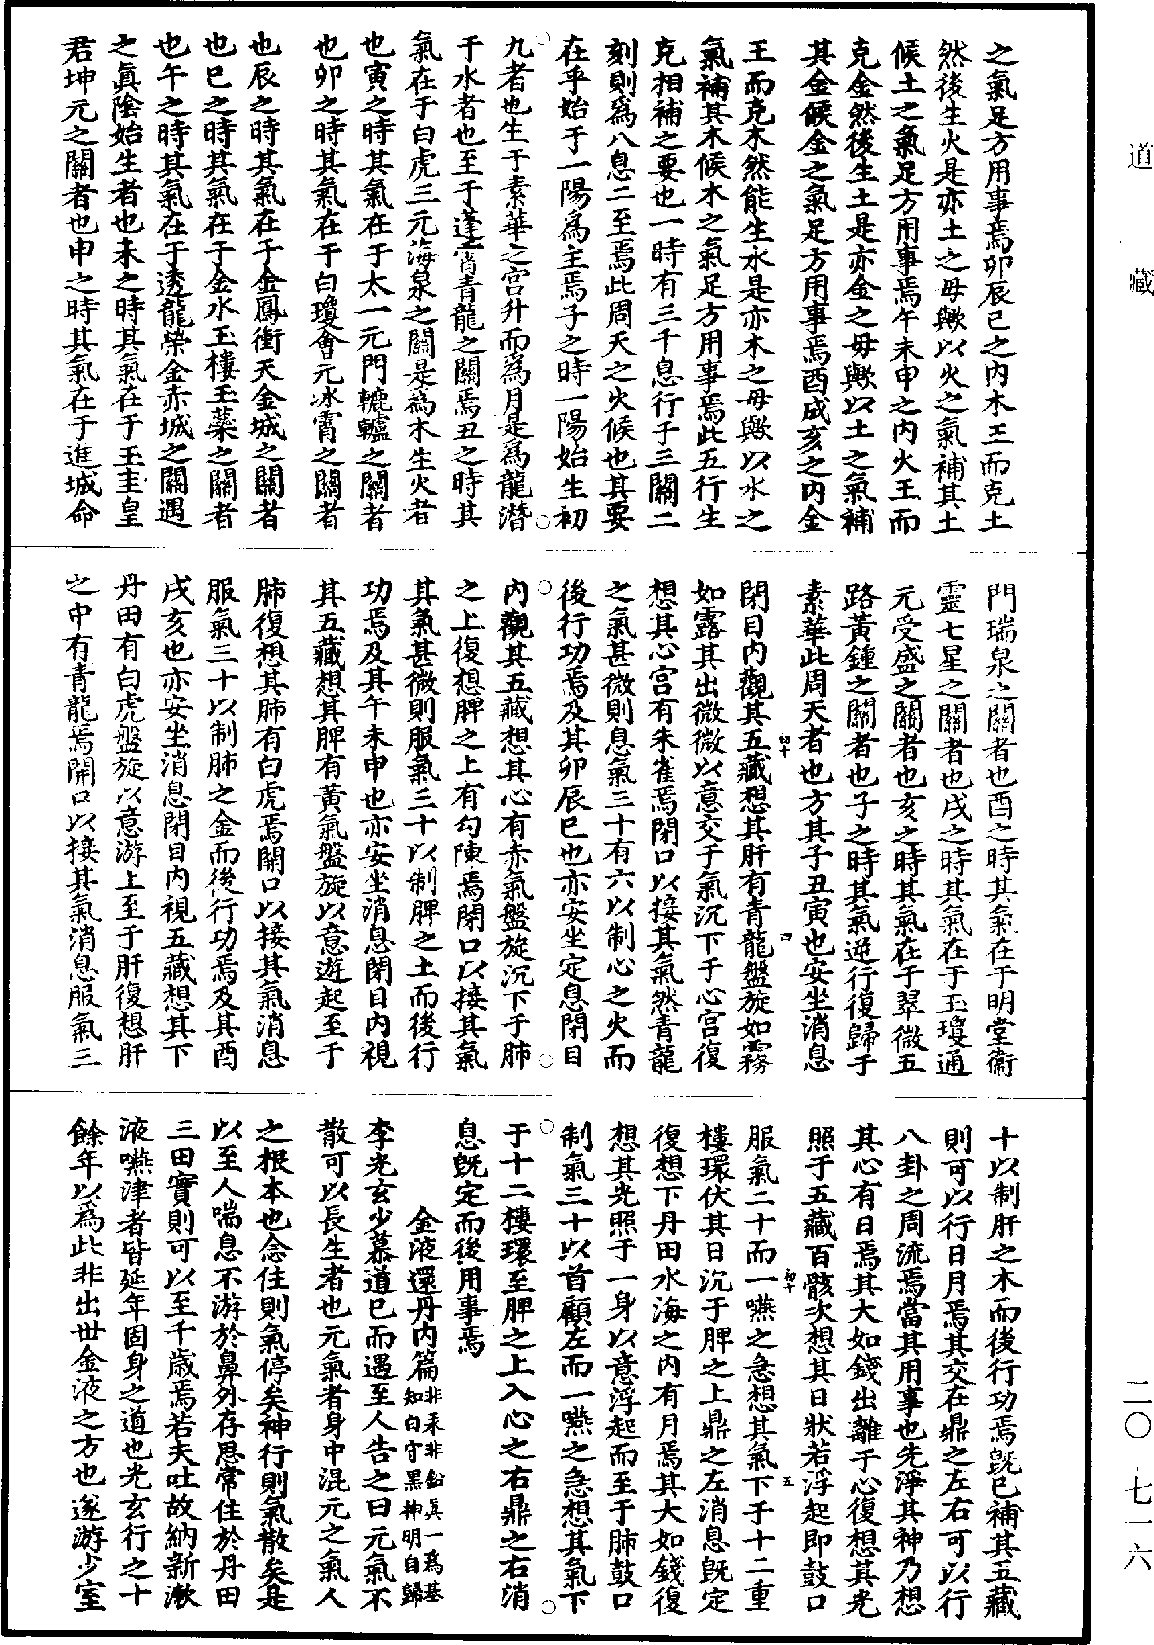 之氣足方用事焉卯辰巳之內木王而克土
然後生火是亦土之母歟以火之氣補其土
候土之氣足方用事焉午未申之內火王而
克金然後生土是亦金之母歟以土之氣補
其金候金之氣足方用事焉酉戌亥之內金
王而克木然能生水是亦木之母歟以水之
氣補其木候木之氣足方用事焉此五行生
克相補之要也一時有三千息行于三關二
刻則為八息二至焉此周天之火候也其要
在乎始于一陽為主焉子之時一陽始生初
九者也生于素華之宮升而為月是為龍潛
于水者也至于蓬霄青龍之關焉丑之時其
氣在于白虎三元海泉之關是為木生火者
也寅之時其氣在于太一元門轆轤之關者
也卯之時其氣在于白瓊會元冰霄之關者
也辰之時其氣在于金鳳衝天金城之關者
也巳之時其氣在于金水玉樓玉蘂之關者
也午之時其氣在于透龍榮金赤城之關遇
之眞陰始生者也未之時其氣在于玉圭皇
君坤元之關者也申之時其氣在于進城命
門瑞泉之關者也酉之時其氣在于明堂衞
靈七星之關者也戌之時其氣在于玉瓊通
元受盛之關者也亥之時其氣在于翠微五
路黃鍾之關者也子之時其氣逆行復歸于
素華此周天者也方其子丑寅也安坐消息
閉目內觀其五藏想其肝有青龍盤旋如霧
如露其出微微以意交于氣沉下于心宮復
想其心宮有朱雀焉閉口以接其氣然青龍
之氣甚微則息氣三十有六以制心之火而
後行功焉及其卯辰巳也亦安坐定息閉目
內觀其五藏想其心有赤氣盤旋沉下于肺
之上復想脾之上有勾陳焉閉口以接其氣
其氣甚微則服氣三十以制脾之土而後行
功焉及其午未申也亦安坐消息閉目內視
其五藏想其脾有黃氣盤旋以意遊起至于
肺復想其肺有白虎焉開口以接其氣消息
服氣三十以制肺之金而後行功焉及其酉
戌亥也亦安坐消息閉目內視五藏想其下
丹田有白虎盤旋以意游上至于肝復想肝
之中有青龍焉開口以接其氣消息服氣三
十以制肝之木而後行功焉旣已補其五藏
則可以行日月焉其交在鼎之左右可以行
八卦之周流焉當其用事也先淨其神乃想
其心有日焉其大如錢出離于心復想其光
照于五藏百骸次想其日狀若浮起即鼓口
服氣二十而一嚥之急想其氣下于十二重
樓環伏其日沉于脾之上鼎之左消息旣定
復想下丹田水海之內有月焉其大如錢復
想其光照于一身以意浮起而至于肺鼓口
制氣三十以首顧左而一嚥之急想其氣下
于十二樓環至脾之上入心之右鼎之右消
息旣定而後用事焉
金液還丹內篇非汞非鉛眞一為基知白守黑神明自歸
李光玄少慕道已而遇至人告之曰元氣不
散可以長生者也元氣者身中混元之氣人
之根本也念住則氣停矣神行則氣散矣是
以至人喘息不游於鼻外存思常住於丹田
三田實則可以至千歲焉若夫吐故納新漱
液嚥津者皆延年固身之道也光玄行之十
餘年以為此非出世金液之方也遂游少室
道藏
二〇·七一六